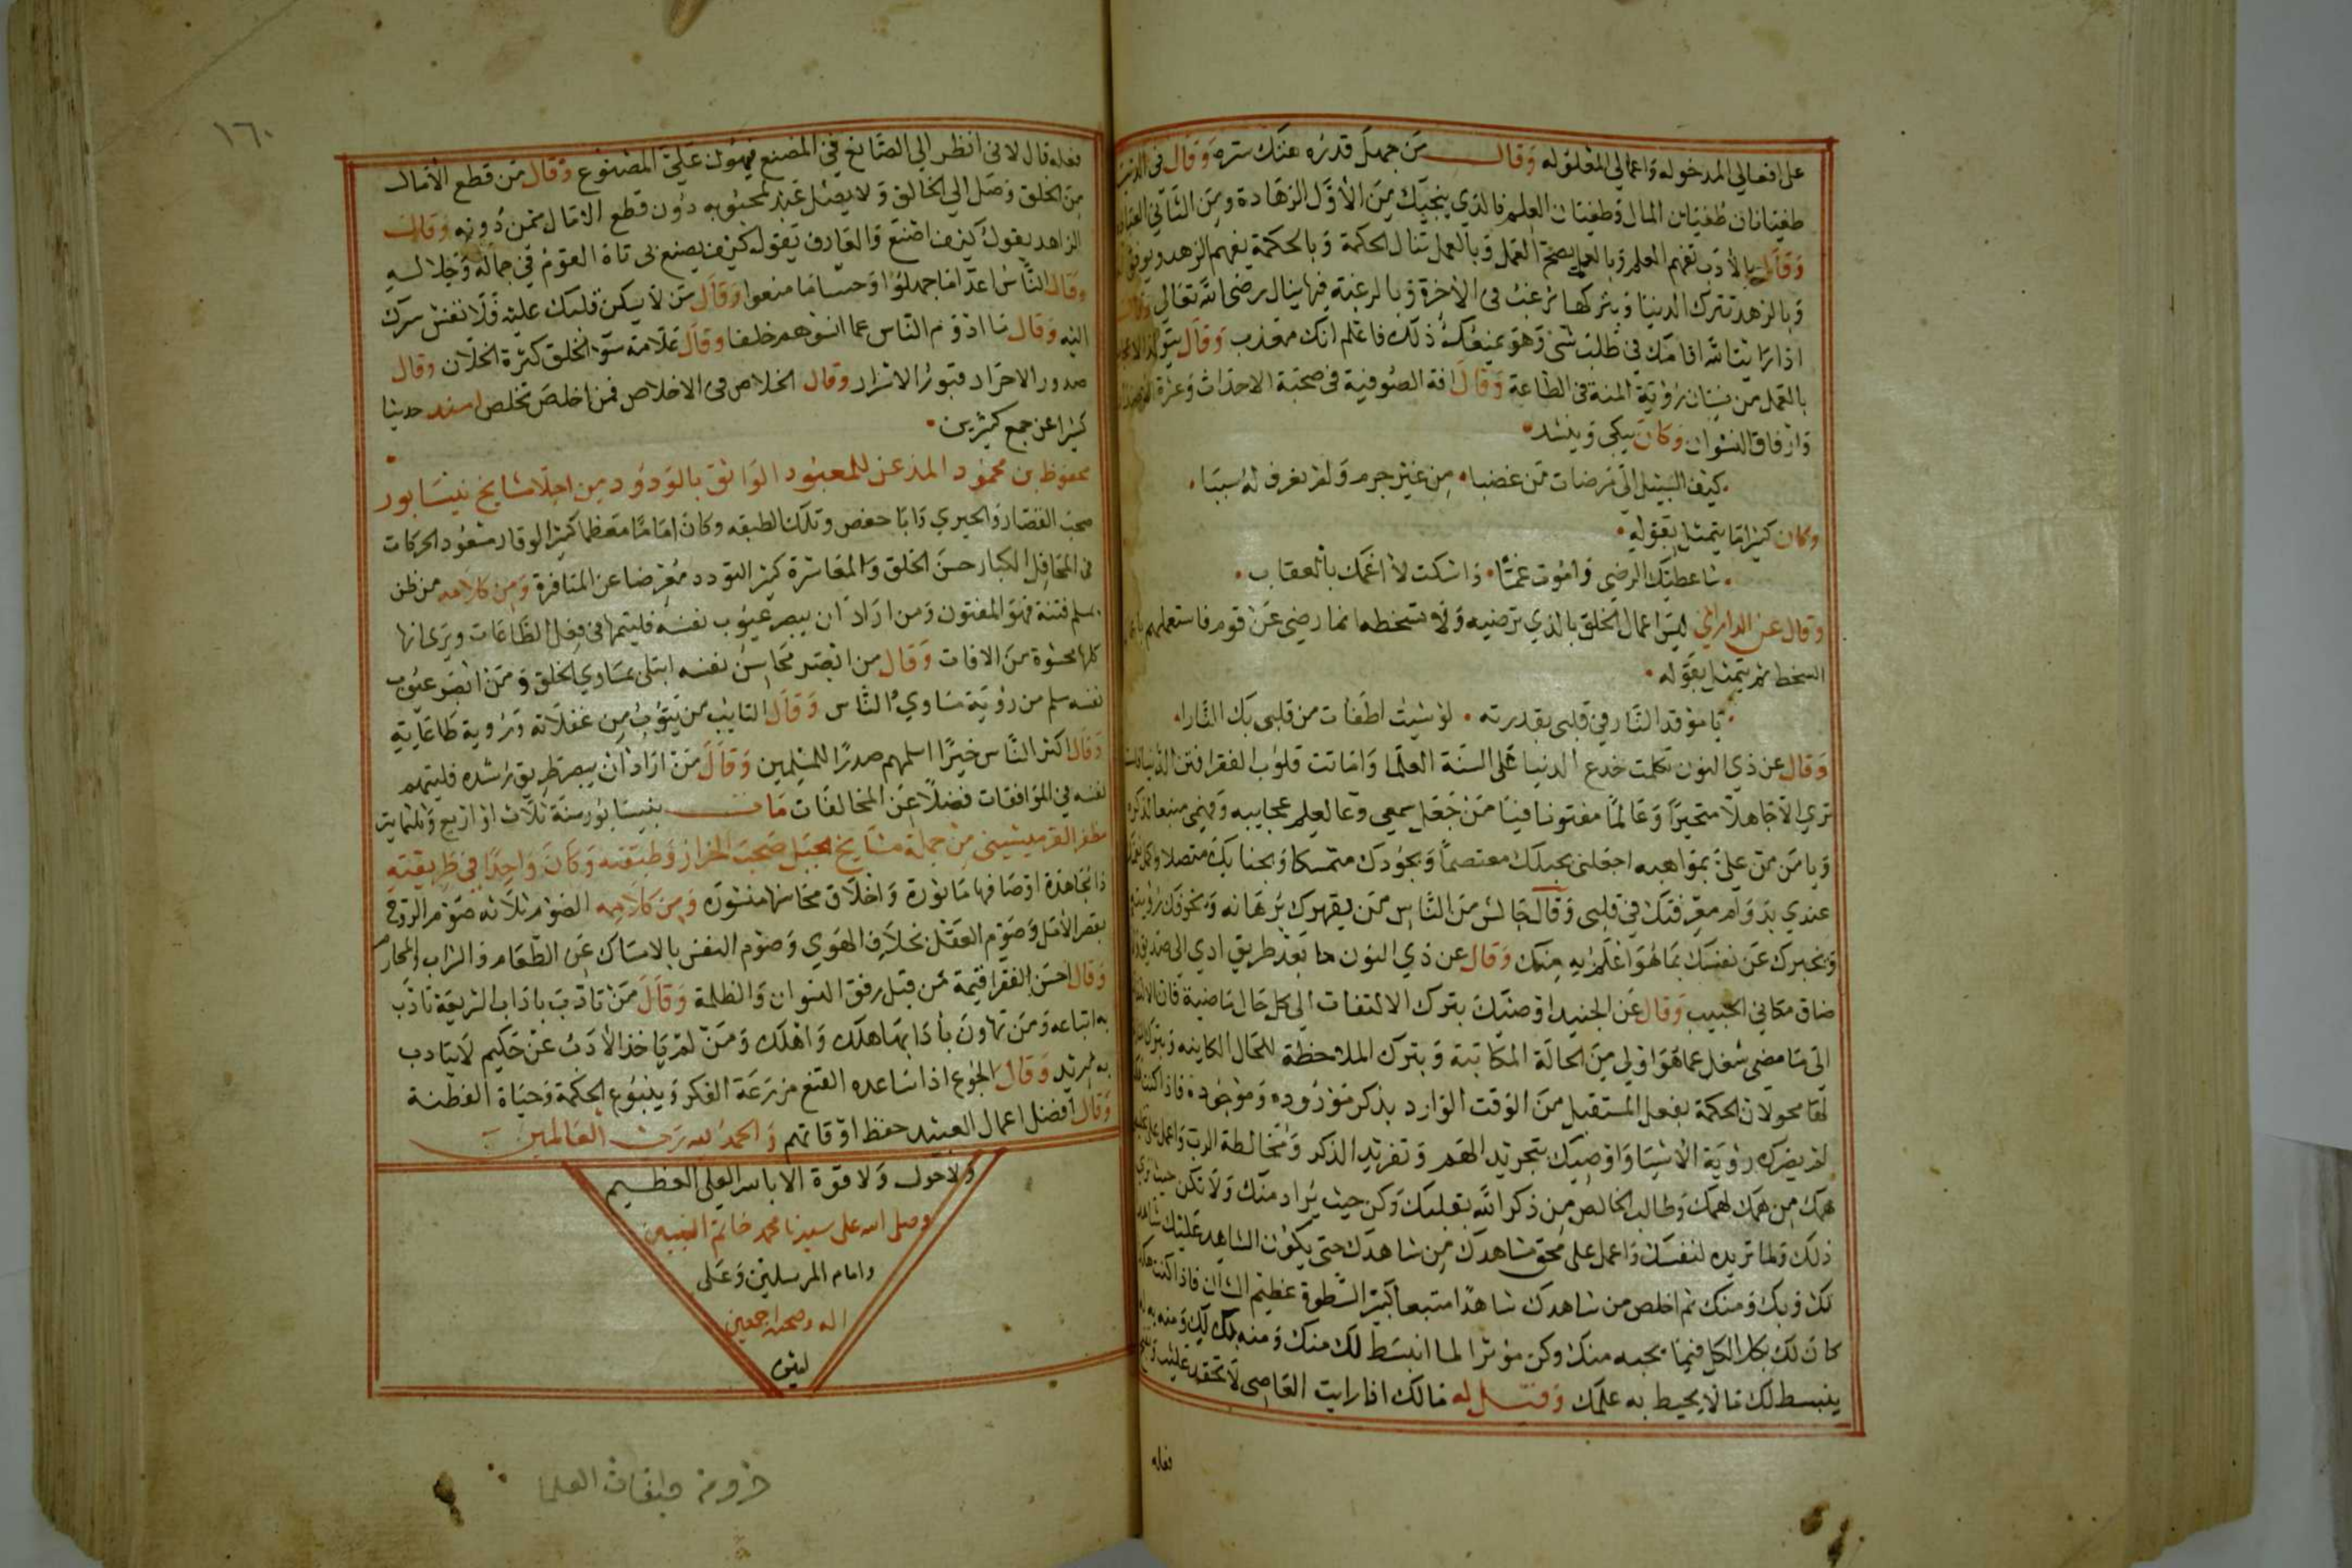 على افعالي المدخوله واعمالي المعلوله وقال من جهل قدره هتك ستره وقال في الدنيا
طغيانان طغيان المال وطغيان العلم فالذي ينجيك من الاول الزهادة ومن الثاني العباده
وقال بالادب تفهم العلم وبالعلم يصح العمل وبالعمل تنال الحكمة وبالحكمة يفهم الزهد ويوفق
وبالزهد تترك الدنيا وبتركها ترغب في الاخرة وبالرغبة فيها ينال رضى الله تعالى وقال
اذا رايت الله اقامك في طلب شي وهو يمنعك ذلك فاعلم انك معذب وقال يتولد الاعجاب
بالعمل من نسيان رؤية المنة في الطاعة وقال افة الصوفية في صحبة الاحداث وعزة
وارفاق النسوان وكان يبكي وينشد
كيف السبيل الى مرضات من غضبا من غير جرم ولم يعرف له سببا
وكان كثيرا ما يتمثل بقوله
ساعطيك الرضى واموت غما واسكت لا اغمك بالعقاب
وقال عن الداراني ليس اعمال الخلق بالذي ترضيه ولا تسخطه انما رضي عن قوم فاستعملهم
السخط ثم يتمثل بقوله
يا موقد النار في قلبي بقدرته لو شيت اطفات من قلبي بك النارا
وقال عن ذي النون تكلمت خدع الدنيا على السنة العلما واماتت قلوب الفقرا فتن الدنيا
ترى الا جاهلا متحيرا وعالما مفتونا فيا من جعل سمعي وعا لعلم عجايبه وفهمي منبعا لذكره
ويا من من علي بمواهبه اجعلني بحبلك معتصما وبجودك متمسكا وبحنابك متصلا
عندي بدوام معرفتك في قلبي وقال جالس من الناس من يقهرك برهانه ويخوفك رؤيته
ويخبرك عن نفسك بما هو اعلم به منك وقال عن ذي النون ما بعد طريق ادي الى صديق ولا
ضاق مكاني الحبيب وقال عن الجنيد اوصيك بترك الالتفات الى كل حال ماضية فان
الى ما مضى شغل عما هو اولى من الحالة المكاتبة وبترك الملاحظة للحال الكاينه وبترك
لقا محولان الحكمة بفعل المستقبل من الوقت الوارد بذكر موروده وموجوده فاذا كنت
لم يضرك رؤية الاشيا واوصيك بتجريد الهم وتفريد الذكر ومخالطة الرب واعمل على
همك من همك لهمك وطالب الخالص من ذكر الله بقلبك وكن حيث يراد منك ولا تكن حيث تريد
ذلك ولما تريده لنفسك واعمل على محق مشاهدك من شاهدك حتى يكون الشاهد عليك شاهدا
لك وبك ومنك ثم اخلص من شاهدك شاهدا متبعا كبير السطوة عظيم الشان فاذا كنت هكذا
كان لك بكل الكل فيما يحبه منك وكن موثرا لما انبسط لك منك ومنه بك لك ومنه به
ينبسط لك ما لا يحيط به علمك وقيل له مالك اذا رايت العاصي لا تحقد عليه
فعله
١٦٠
فعله قال لاني انظر الى الصانع في المصنع فيهون علي المصنوع وقال من قطع الامال
من الخلق وصل الى الخالق ولا يصل عبد لمحبوبه دون قطع الامال ممن دونه وقال
الزاهد يقول كيف اصنع والعارف يقول كيف يصنع لي تاه القوم في جماله وجلاله
وقال الناس اعدا ما جهلوا وحساما منعوا وقال من لا يسكن قلبك عليه فلا تفش سرك
اليه وقال ما اذوم الناس عما انسوهم خلفا وقال علامة سو الخلق كثرة الخلان وقال
صدور الاحرار قبور الاسرار وقال الخلاص في الاخلاص فمن اخلص تخلص اسند حديثا
كثيرا عن جمع كثيرين
محفوظ بن محمود المذعن للمعبود الواثق بالودود من اجلا مشايخ نيسابور
صحب القصار والحيري وابا حفص وتلك الطبقه وكان اماما معظما كثير الوقار مشعود الحركات
في المحافل الكبار حسن الخلق والمعاشرة كثير التودد معرضا عن المنافرة ومن كلامه من ظن
بمسلم فتنة فهو المفتون ومن اراد ان يبصر عيوب نفسه فليتهمها في فعل الطاعات ويرى انها
كلها محشوة من الافات وقال من ابصر محاسن نفسه ابتلي بمساوي الخلق ومن ابصر عيوب
نفسه سلم من رؤية مساوي الناس وقال التايب من يتوب من غفلاته ورؤية طاعاته
وقال اكثر الناس خيرا اسلمهم صدرا للمسلمين وقال من اراد ان يبصر طريق رشده فليتهم
نفسه في الموافقات فضلا عن المخالفات مات بنيسابور سنة ثلاث او اربع وثلثمايه
مظفر القرميسيني من جملة مشايخ الجبل صحب الخراز وطبقته وكان واحدا في طريقته
ذا مجاهدة اوصافها ماثورة واخلاق محاسنها منشوره ومن كلامه الصوم ثلاثه صوم الروح
بقصر الامل وصوم العقل بخلاف الهوى وصوم النفس بالامساك عن الطعام والشراب والمحارم
وقال احسن الفقرا قيمة من قبل رفق النسوان والظلمة وقال من تادب باداب الشريعة تادب
به اتباعه ومن تهاون بادابها هلك واهلك ومن لم ياخذ الادب عن حكيم لا يتادب
به مريد وقال الجوع اذا ساعده القنع مزرعة الفكر وينبوع الحكمة وحياة الفطنة
وقال افضل اعمال العبيد حفظ اوقاتهم والحمد لله رب العالمين
ولا حول ولا قوة الا بالله العلي العظيم
وصلى الله على سيدنا محمد خاتم النبيين
وامام المرسلين وعلى
اله وصحبه اجمعين
امين
طبقات العلما